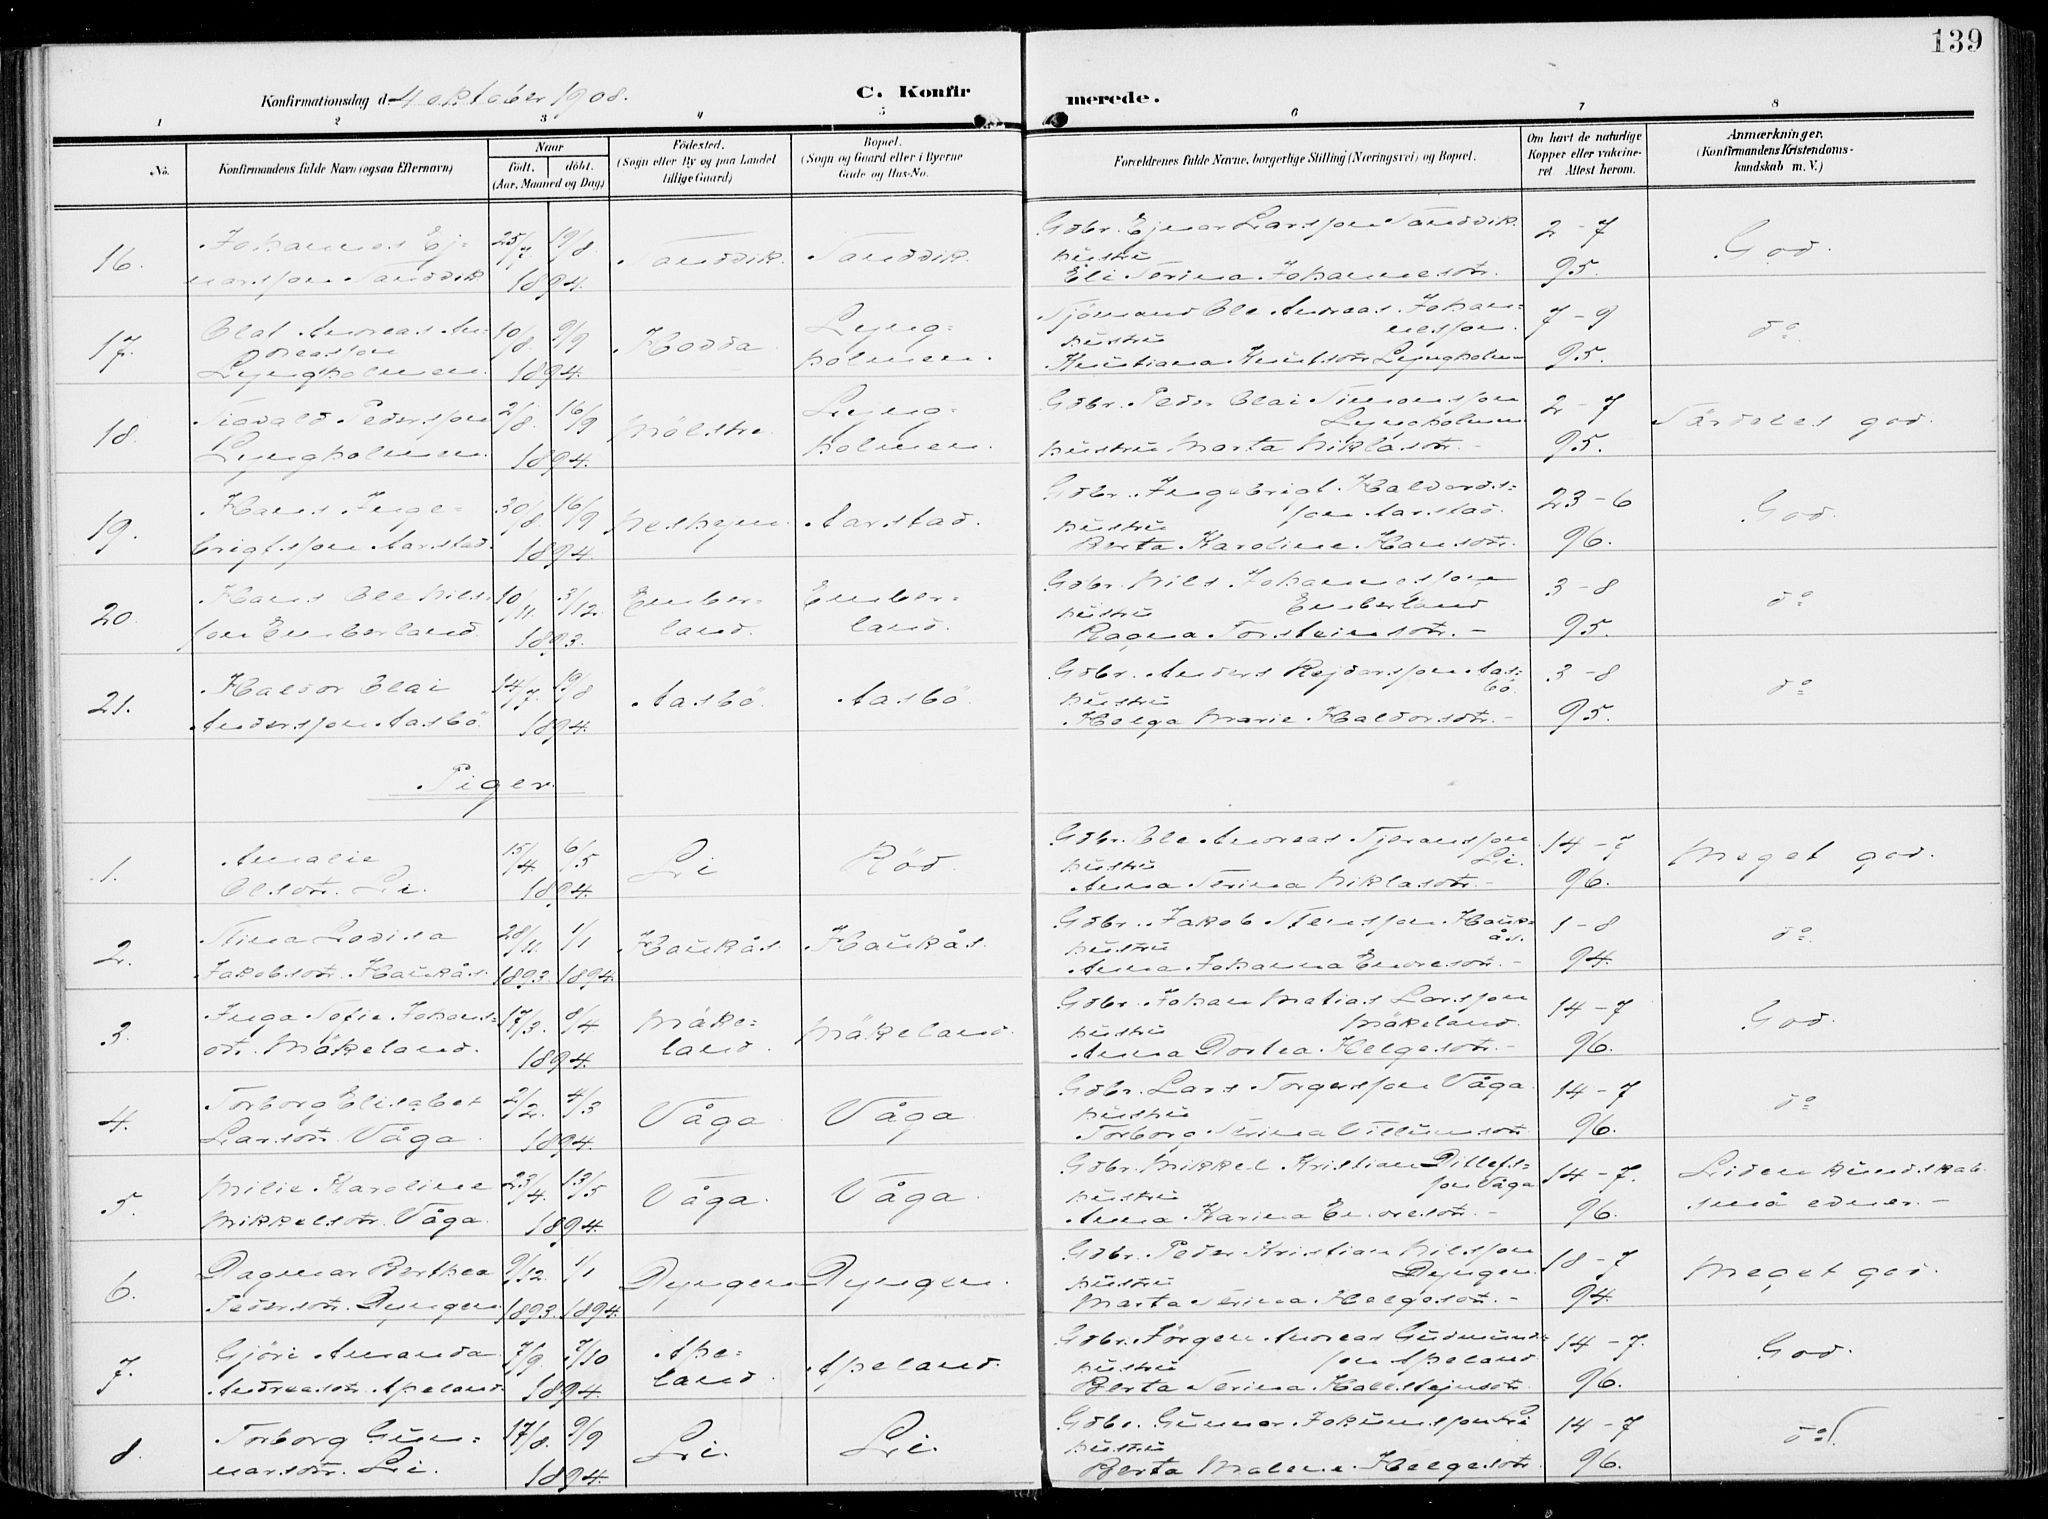 139
Konfirmationsdag d. 4 oktober 1908.
C. Konfirmerede.
1 2 3 4 5 6 7 8
No. Konfirmandens fulde Navn (ogsaa Efternavn) Naar født. døbt. (Aar, Maaned og Dag) Fødested. (Sogn eller By og paa Landet tillige Gaard) Bopæl. (Sogn og Gaard eller i Byerne Gade og Hus-No. Forældrenes fulde Navne, borgerlige Stilling (Næringsvei) og Bopæl. Om havt de naturlige Kopper eller vakcineret Attest herom. Anmærkninger. (Konfirmandens Kristendomskundskab m. V.)
16. Johannes Ej- 25/7 19/8 Sandvik. Sandvik. Gdbr. Ejnar Larsson Sandvik 2-7 God.
narsson Sandvik 1894. hustru Eli Serina Johannesdtr. 95.
17. Olaf Andreas An- 10/8 9/9 Hovda Lyng- Sjömand Ole Andreas Johan- 7-9 do
dreasson Lyngholmen. 1894. holmen. nesson. hustru Kristiana Knutsdtr Lyngholmen 95.
18. Sigvald Pedersson 2/8 16/9 Mölstre Lyng- Gdbr. Peder Olai Simonsson 2-7 Särdeles god.
Lyngholmen. 1894. holmen. Lyngholmen hustru Marta Niklasdtr. - 95.
19. Hans Inge- 30/8 16/9 Neshejm. Aarstad. Gdbr. Ingebrigt Haldords- 23-6 God.
brigtsson Aarstad. 1894. son Aarstad. hustru Berta Karoline Hansdtr. 96.
20. Hans Ole Nils- 10/11 3/12. Ember- Ember- Gdbr. Nils Johannesson 3-8 do
son Emberland. 1893. land. land. Emberland hustru Ragna Torsteinsdtr. - 95.
21. Haldor Olai 14/7. 19/8 Aasbö. Aasbö. Gdbr. Anders Rejdarsson Aas- 3-8 do
Andersson Aasbö. 1894. bö. hustru Helga Marie Haldorsdtr. - 95.
Piger.
1. Amalie 15/4 6/5 Li Röd. Gdbr. Ole Andreas Tjeransson 14-7 Meget god.
Olsdtr. Li. 1894. Li. hustru Anna Serina Niklasdtr. - 96.
2. Stina Lovisa 28/11. 1/1 Haukås. Haukås. Gdbr. Jakob Stensson Hauk- 1-8 do
Jakobsdtr. Haukås. 1893. 1894. ås. hustru Anna Johanna Endresdtr. - 94.
3. Inga Sofie Johans- 17/3. 9/4 Mäke- Mäkeland. Gdbr. Johan Matias Larsson 14-7 God.
dtr. Mäkeland. 1894. land. Mäkeland. hustru Anna Dortea Helgesdtr. - 96.
4. Torborg Elisabet 2/2. 4/3 Våga Våga Gdbr. Lars Torgersson Våga. 14-7 do
Larsdtr. Våga. 1894. hustru Torborg Serina Villumsdtr 96.
5. Milie Karoline 23/4. 13/5 Våga. Våga. Gdbr. Mikkel Kristian Ditlefs- 14-7. Liden kundskab.
Mikkelsdtr. Våga. 1894. son Våga hustru Anna Karina Endresdtr. - 96. små evner. -
6. Dagmar Berthea 9/12. 1/1 Dyngen Dyngen. Gdbr. Peder Kristian Nilsson 18-7 Meget god.
Pedersdtr. Dyngen 1893. 1894. Dyngen. hustru Marta Serina Helgesdtr. - 94.
7. Gjöri Amanda 7/9. 7/10 Ape- Apeland. Gdbr. Jörgen Andreas Gudmunds- 14-7. God.
Andreasdtr. Apeland. 1894. land. son Apeland. hustru Berta Serina Hallstejnsdtr. 96.
8. Torborg Gun- 17/8. 9/9 Li. Li. Gdbr. Gunnar Jokumsson Li 14-7 do
narsdtr. Li. 1894. hustru Berta Malene Helgesdtr 96.